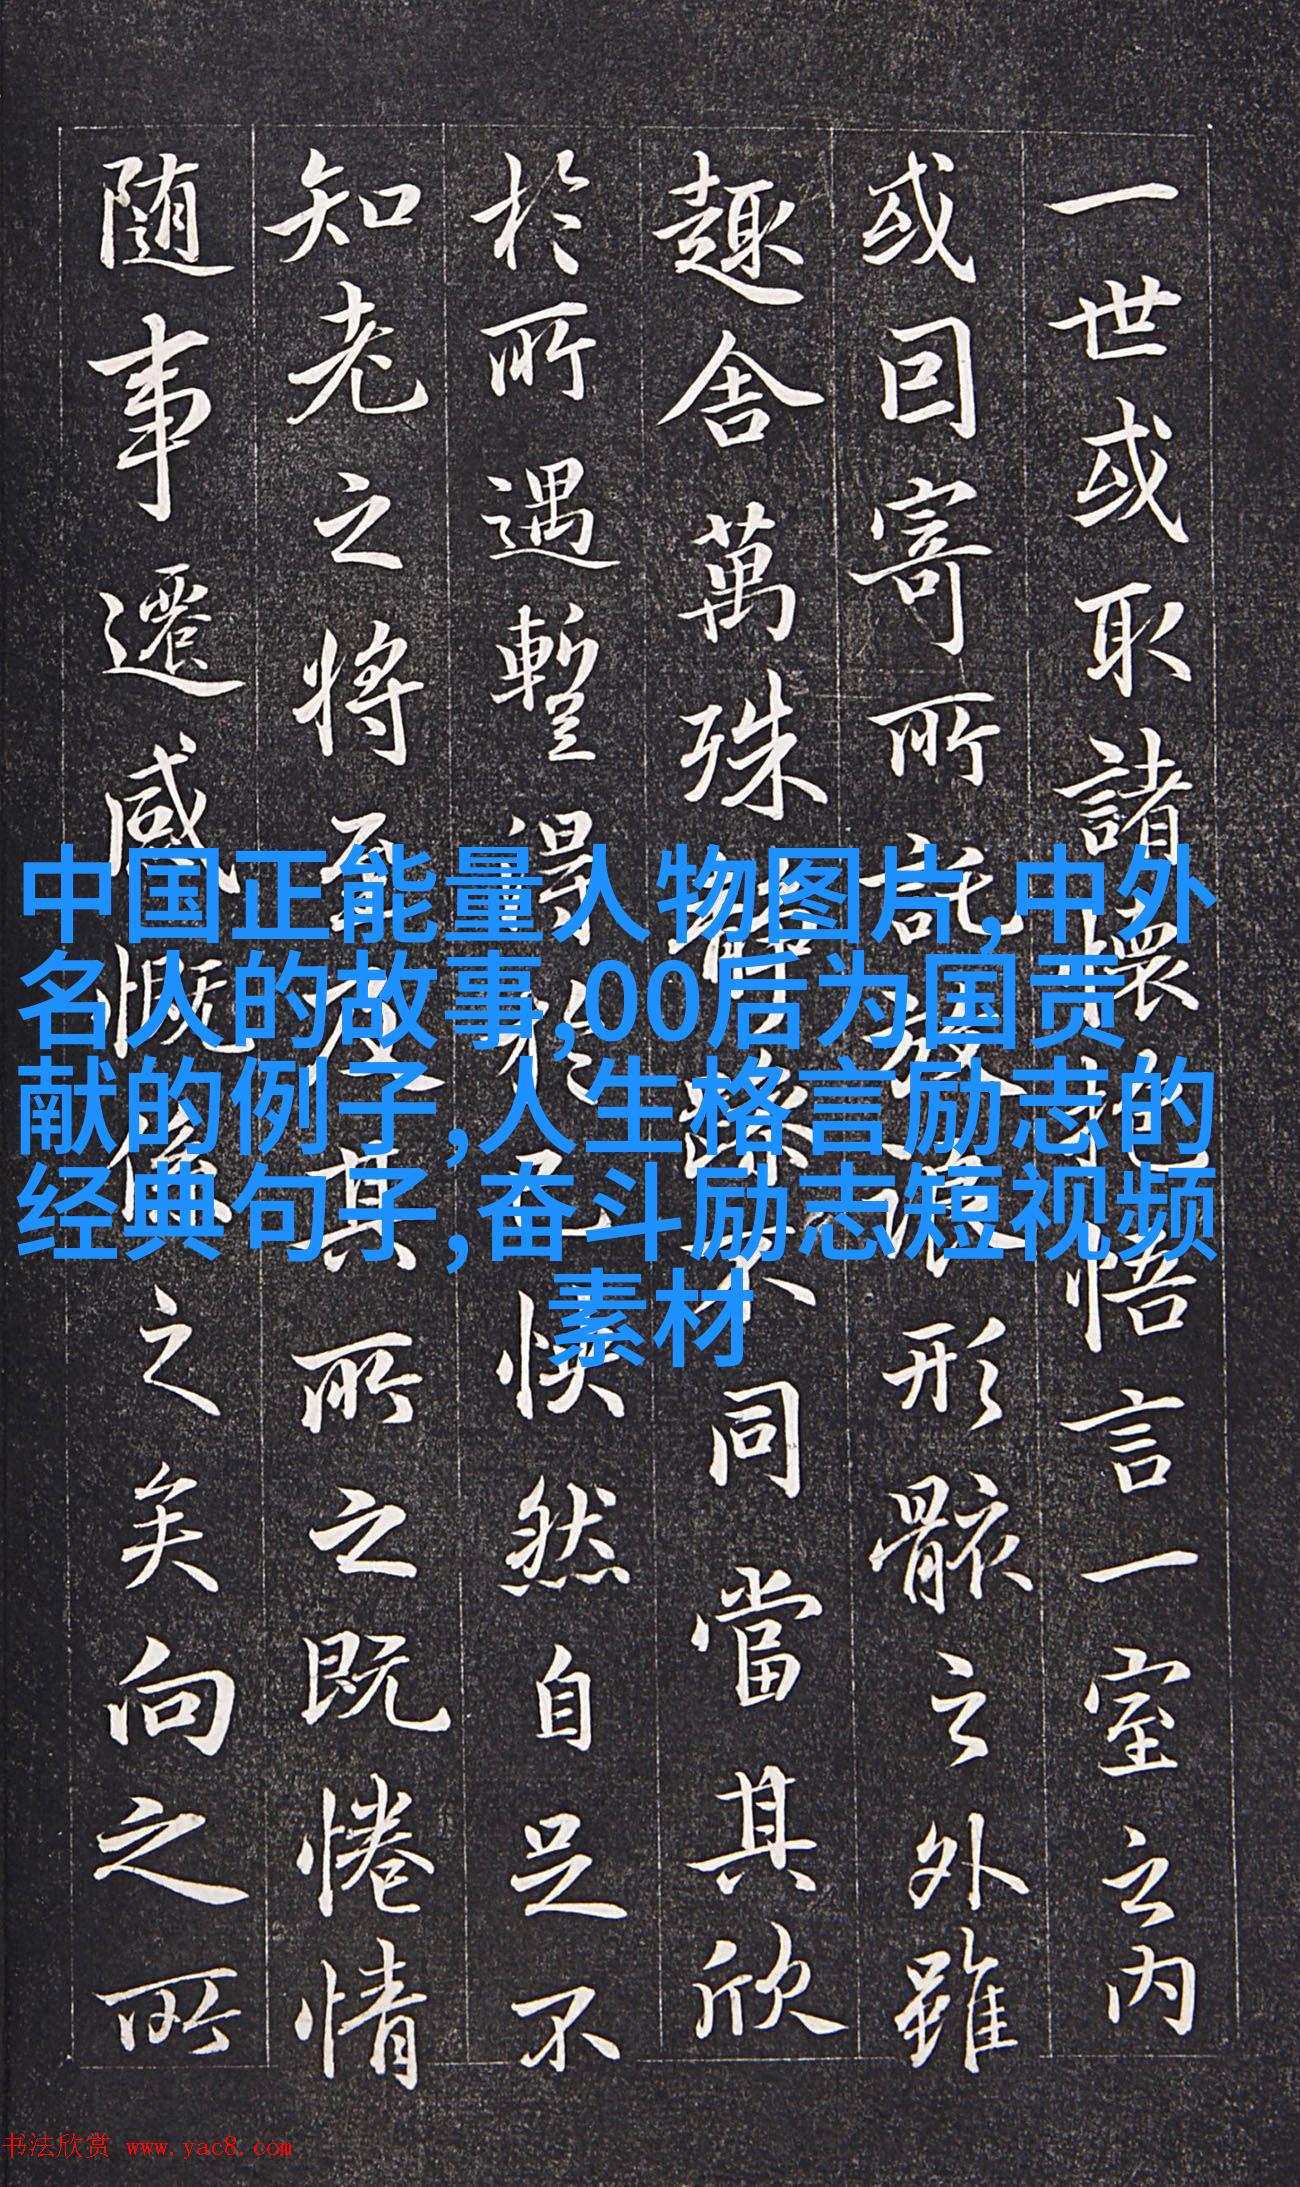 一世或取諸懷抱悟言一室之内
或囙寄所託放浪形骸之外雖
趣舍萬殊靜躁不同當其欣
於所遇暫得於己怏然自足不
知老之將至及其所之既惓情
随事遷感慨係之矣向之所
中国正能量人物图片,中外
名人的故事,00后为国贡
献的例子,人生格言励志的
经典句子,奋斗励志短视频
素材
书法欣赏 www.yac8.com